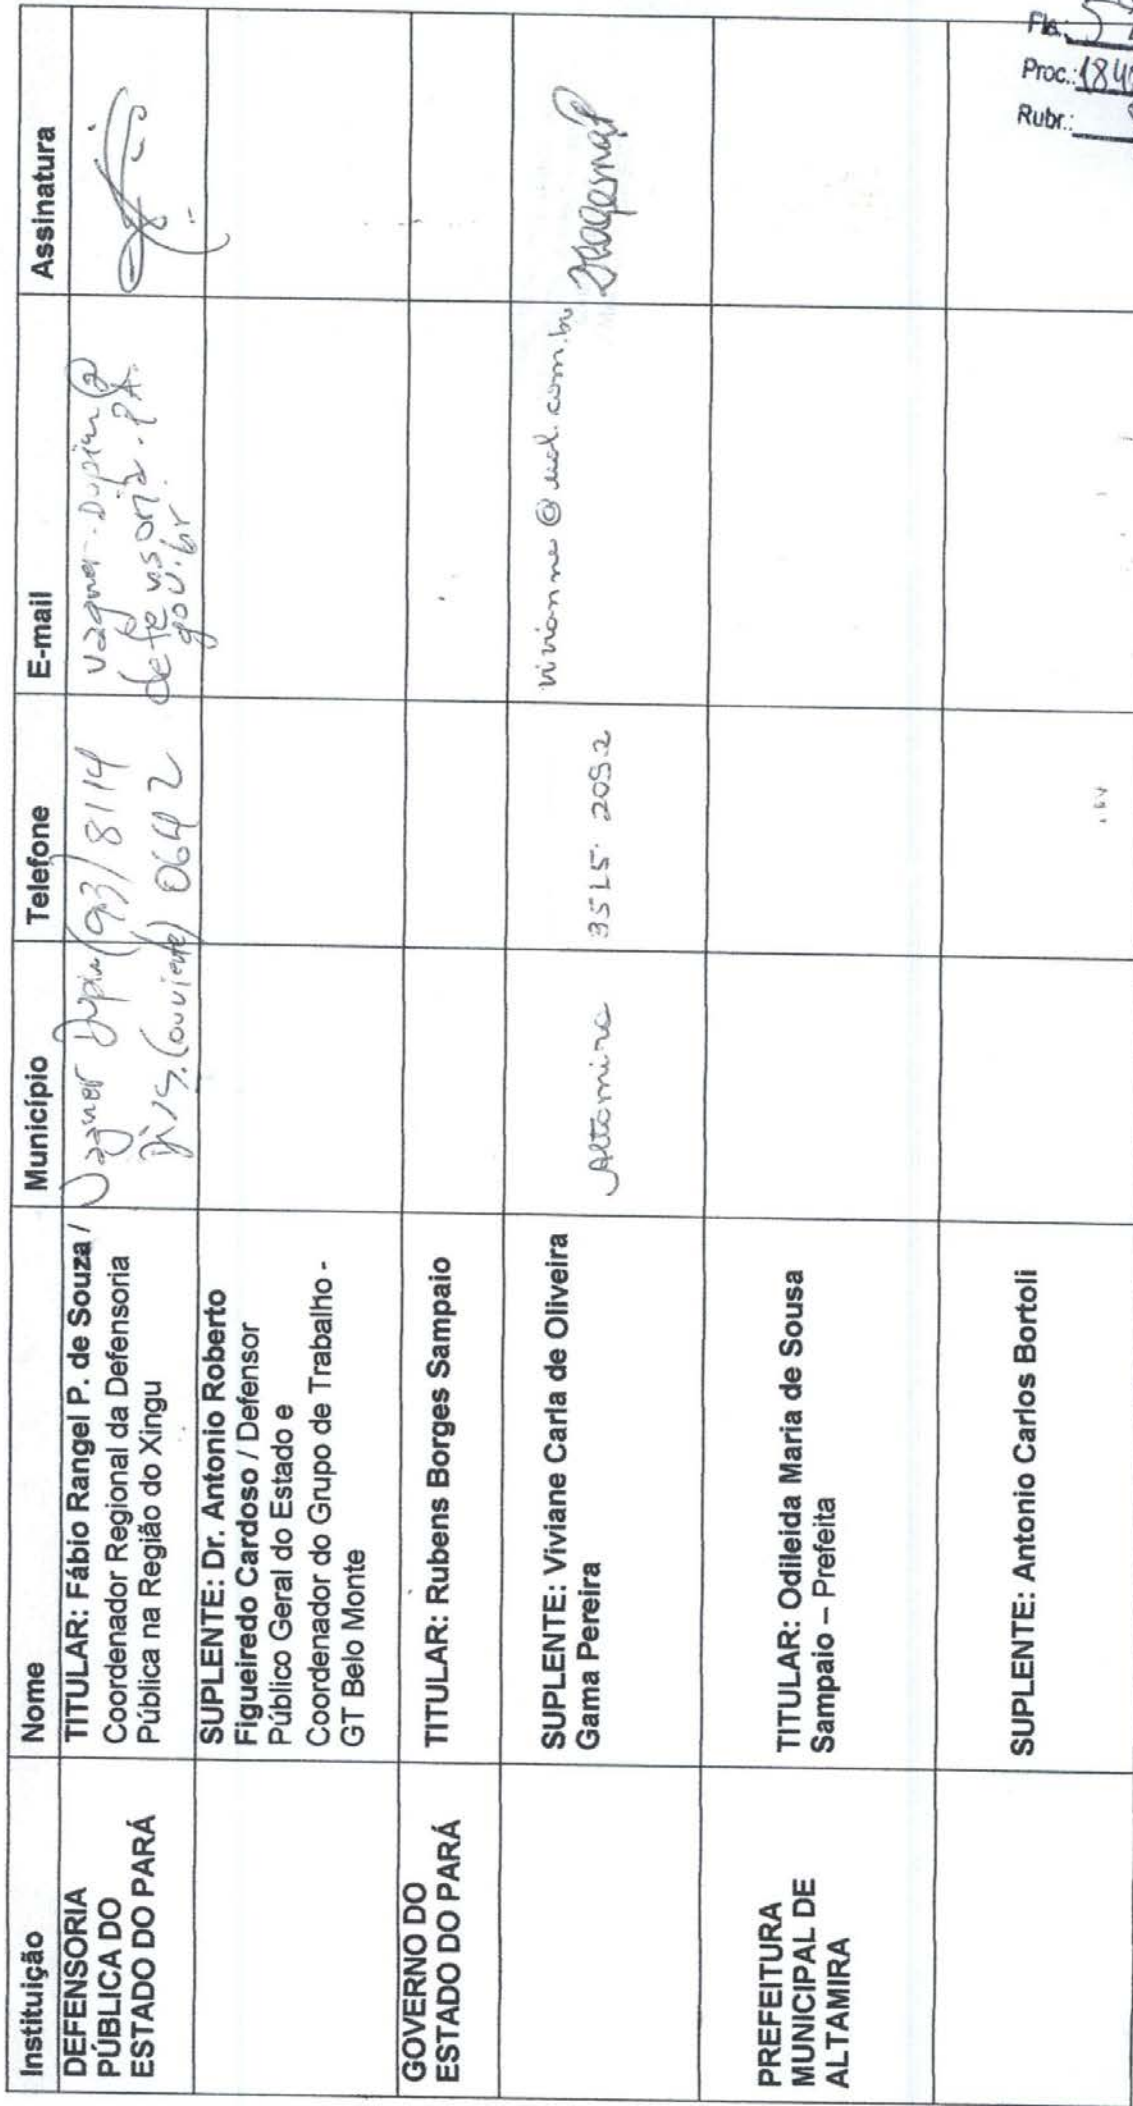 Instituição Nome Município Telefone E-mail Assinatura
DEFENSORIA
PÚBLICA DO
ESTADO DO PARÁ
TITULAR: Fábio Rangel P. de Souza /
Coordenador Regional da Defensoria
Pública na Região do Xingu
Vagner Dupim
(ouvinte)
(93) 8114
0642
vagner.Dupim@
defensoria.PA.
gov.br
SUPLENTE: Dr. Antonio Roberto
Figueiredo Cardoso / Defensor
Público Geral do Estado e
Coordenador do Grupo de Trabalho -
GT Belo Monte
GOVERNO DO
ESTADO DO PARÁ
TITULAR: Rubens Borges Sampaio
SUPLENTE: Viviane Carla de Oliveira
Gama Pereira
Altamira
3515. 2092
vivianne@uol.com.br
PREFEITURA
MUNICIPAL DE
ALTAMIRA
TITULAR: Odileida Maria de Sousa
Sampaio – Prefeita
SUPLENTE: Antonio Carlos Bortoli
Fls.:
Proc.: 184
Rubr.: